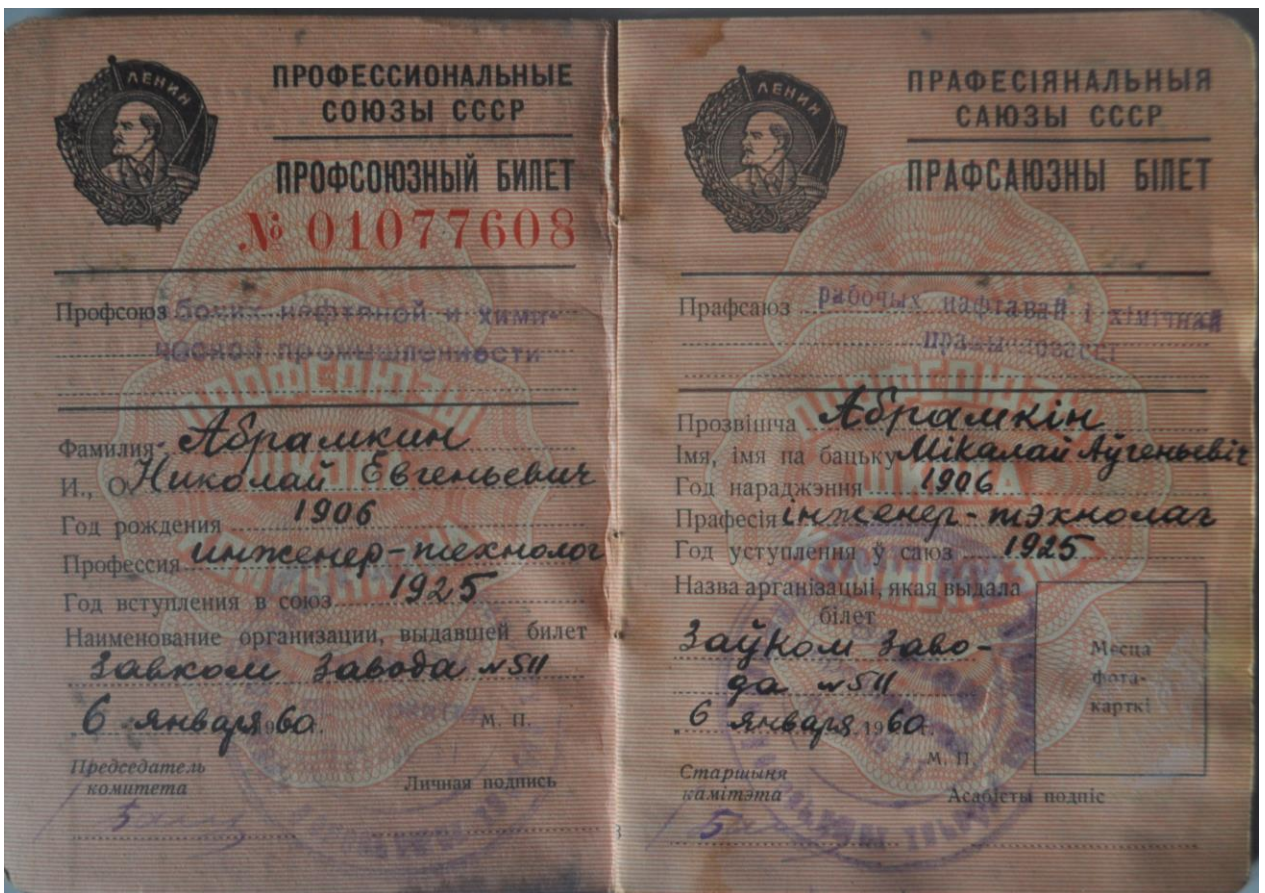 ЛЕНИН
ПРОФЕССИОНАЛЬНЫЕ
СОЮЗЫ СССР
ПРОФСОЮЗНЫЙ БИЛЕТ
№ 01077608
Профсоюз бочих нефтяной и хими-
ческой промышленности
Фамилия Абрамкин
И., О. Николай Евгеньевич
Год рождения 1906
Профессия инженер-технолог
Год вступления в союз 1925
Наименование организации, выдавшей билет
Завком Завода №511
6 января 1960г.
М. П.
Председатель
комитета
Личная подпись
ЛЕНИН
ПРАФЕСІЯНАЛЬНЫЯ
САЮЗЫ СССР
ПРАФСАЮЗНЫ БІЛЕТ
Прафсаюз рабочых нафтавай і хімічнай
Прозвішча Абрамкін
Імя, імя па бацьку Мікалай Аўгеньевіч
Год нараджэння 1906
Прафесія інжэнер-тэхнолаг
Год уступлення ў саюз 1925
Назва арганізацыі, якая выдала
білет
Заўком Заво-
да №511
6 января 1960г.
М. П.
Месца
фота-
карткі
Старшыня
камітэта
Асабісты подпіс
3